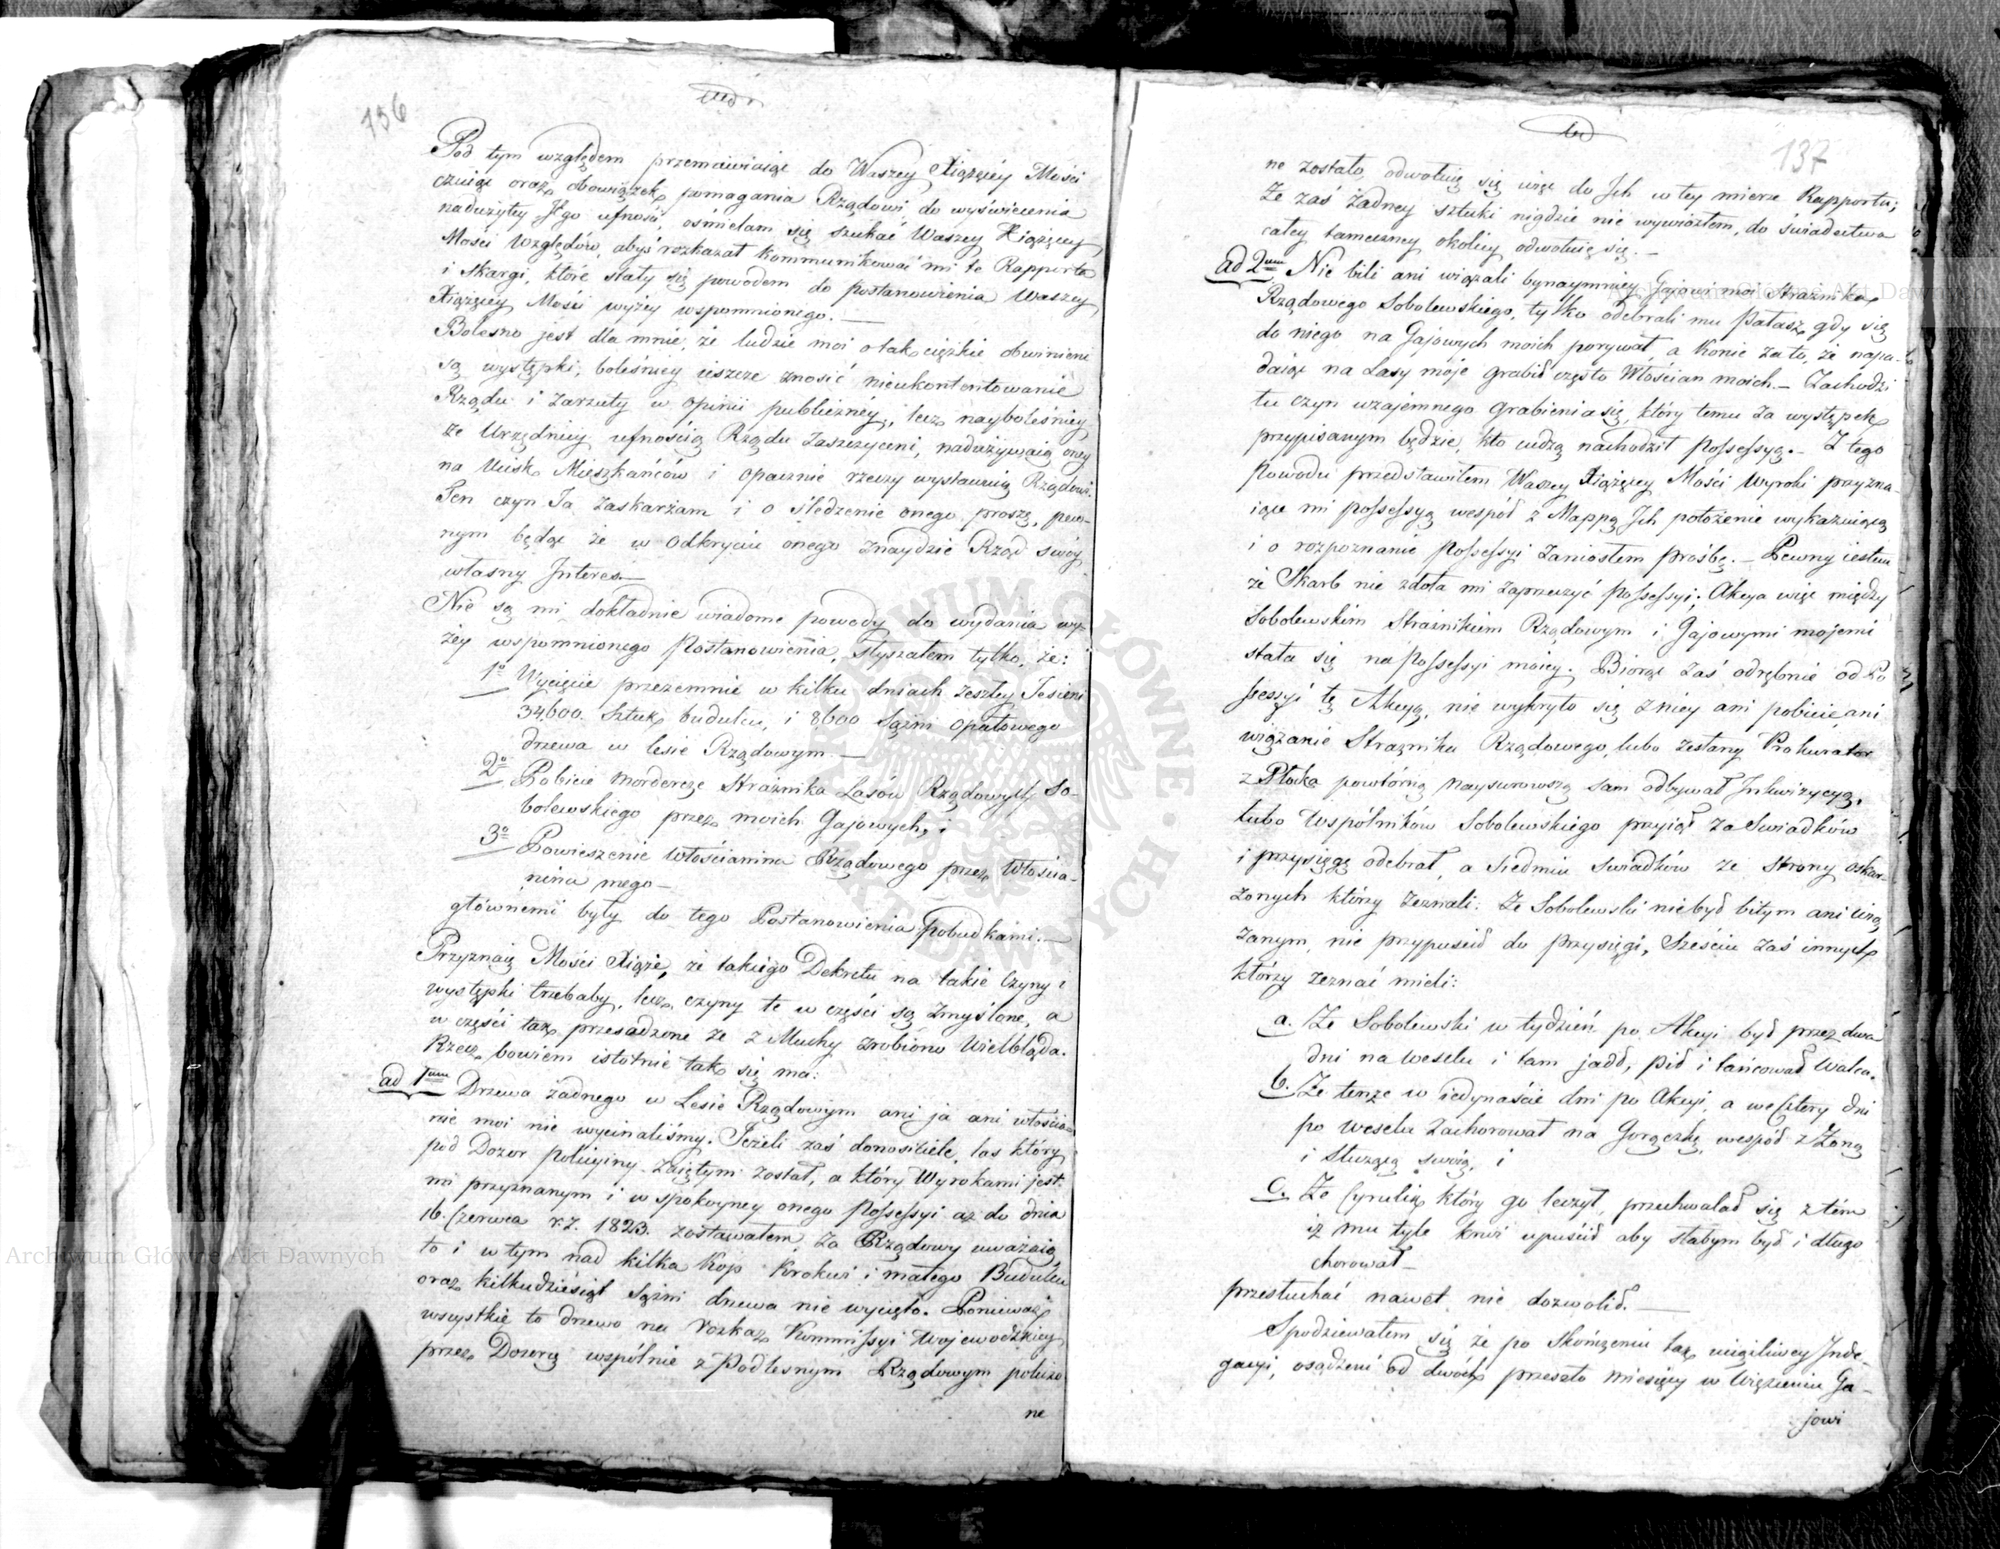 136
Pod tym względem przemawiaiąc do Waszey Xiążęcéy Mości
czuiąc oraz obowiązek pomagania Rządowi do wyświecenia
nadużytey Jego ufności, ośmielam się szukać Waszey Xiążęcey
Mości względów, abyś rozkazał kommunikować mi te Rapporta
i Skargi, które stały się powodem do postanowienia Waszey
Xiążęcey Mości wyżey wspomnionego. —
Bolesno jest dla mnie, że ludzie moi o tak ciężkie obwinieni
są występki, boleśniey ieszcze znosić nieukontentowanie
Rządu i zarzuty w opinii publicznéy, lecz nayboleśniey,
że Urzędnicy ufnością Rządu zaszczyceni, nadużywaią oney
na Ucisk Mieszkańców i opacznie rzeczy wystawuią Rządowi.
Ten czyn Ja zaskarżam i o śledzenie onego proszę, pew-
nym będąc że w odkryciu onego znaydzie Rząd swóy
własny Interes. —
Nie są mi dokładnie wiadome powody do wydania wy-
żey wspomnionego Postanowienia, słyszałem tylko, że:
1o Wycięcie przezemnie w kilku dniach zeszłey Jesieni
34,600. Sztuk budulcu, i 8,600 Sążni opałowego
drzewa w lesie Rządowym. —
2o Pobicie mordercze Strażnika Lasów Rządowych So-
bolewskiego przez moich Gajowych, i
3o Powieszenie Włościanina Rządowego przez Włościa-
nina mego —
głównemi były do tego Postanowienia pobudkami. —
Przyznaię Mości Xiąże, że takiego Dekretu na takie Czyny i
występki trzebaby, lecz czyny te w części są zmyślone, a
w części tak przesadzone że z Muchy zrobiono Wielbłąda.
Rzecz bowiem istotnie tak się ma:
ad 1mum Drzewa żadnego w Lesie Rządowym ani ja ani włościa-
nie moi nie wycinaliśmy. Jeżeli zaś donosiciele, las który
pod Dozor policyiny zaiętym został, a który Wyrokami jest
mi przyznanym i w spokoyney onego Possessyi aż do dnia
16. Czerwca r. z. 1823. zostawałem, za Rządowy uważaią,
to i w tym nad kilka Kop Krokwi i małego Budulcu
oraz kilkudziesiąt Sążni drzewa nie wycięto. Ponieważ
wszystkie to drzewo na rozkaz Kommissyi Wojewodzkiey
przez Dozorcę wspólnie z Podlesnym Rządowym policzo
ne
137
ne zostało, odwołuię się więc do Ich w tey mierze Rapportu;
Że zaś żadney sztuki nigdzie nie wywiozłem, do świadectwa
całey tameczney okolicy odwołuię się. —
ad 2dum Nie bili ani wiązali bynaymniey Gajowi moi Strażnika
Rządowego Sobolewskiego, tylko odebrali mu pałasz gdy się
do niego na Gajowych moich porywał, a konie za to, że napa-
daiąc na Lasy moje grabił często Włościan moich. — Zachodzi
tu czyn wzajemnego grabienia się, który temu za występek
przypisanym będzie, kto cudzą nachodził Possessyą. — Z tego
Powodu przedstawiłem Waszey Xiążęcey Mości Wyroki przyzna-
iące mi possessyą wespół z Mappą Ich położenie wykazuiącą
i o rozpoznanie Possessyi zaniosłem prośbę. — Pewny iestem
że Skarb nie zdoła mi zaprzeczyć Possessyi; Akcya więc między
Sobolewskim Strażnikiem Rządowym i Gajowymi mojemi
stała się na Possessyi moiey. Biorąc zaś odrębnie od Po
ssessyi tę Akcyą, nie wykryło się z niey ani pobicie, ani
wiązanie Strażnika Rządowego, lubo zesłany Prokurator
z Płocka powtórną naysurowszą sam odbywał Inkwizycyą,
lubo Wspólników Sobolewskiego przyiął za Świadków
i przysięgę odebrał, a siedmiu świadków ze strony oskar-
żonych którzy zeznali: że Sobolewski niebył bitym ani wią
zanym, nie przypuścił do przysięgi, Sześciu zaś innych
którzy zeznać mieli:
a. Że Sobolewski w tydzień po Akcyi był przez dwa
dni na weselu i tam jadł, pił i tańcował Walca.
b. Że tenże w iedynaście dni po Akcyi, a we Cztery dni
po weselu zachorował na Gorączkę, wespół z Żoną
i służącą swoią, i
c. Że Cyrulik który go leczył, przechwalał się z tém
iż mu tyle krwi upuścił aby słabym był i długo
chorował —
przesłuchać nawet nie dozwolił. —
Spodziewałem się że po skończeniu tak uciążliwey Inda-
gacyi, osądzeni od dwóch przeszło miesięcy w Więzieniu Ga-
jowi